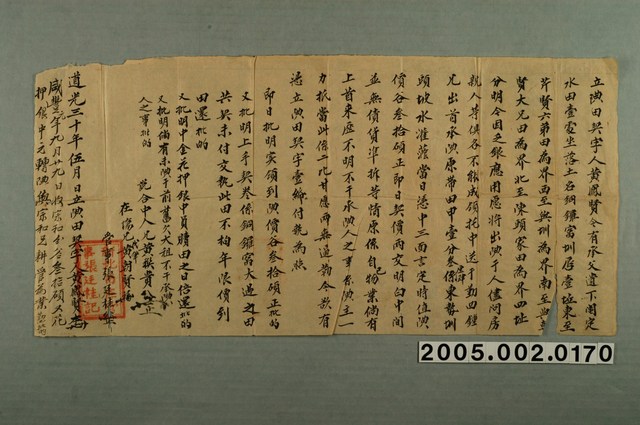 立典田契字人黃鳳賢今有承父遺下鬮定
水田壹處坐落土名銅鑼窩圳唇壹坵東至
芹賢六弟田為界西至與圳為界南至與
賢大兄田為界北至陳頭家田為界四址
分明今因乏銀應用愿將出典于人儘問房
親人等俱各不能成領托中送于勤四
兄出首承典原帶田甲壹分叁係東勢圳
頭坡水灌蔭當日憑中三面言定時值典
價谷叁拾碩正即日契價兩交明白中間
並無債貨準折等情原係自己物業倘有
上首來歷不明不干承典人之事係典主一
力抵當此係二比甘愿兩無逼勒今欲有
憑立典田契字壹紙付執為照
即日批明實領到典價谷叁拾碩正批的
又批明上手契叁係銅鑼窩大過之田
共契未付交執此田不拘年限價到
田還批的
又批明中金花押銀中貝贖田之日倍還批的
又批明倘有未典于前舊欠大祖不干承
人之事批的
說合中人兄黃振賢
在場兄
道光三十年伍月日立典田契字人黃鳳賢
咸豐六年九月廿九日收
2005.002.0170